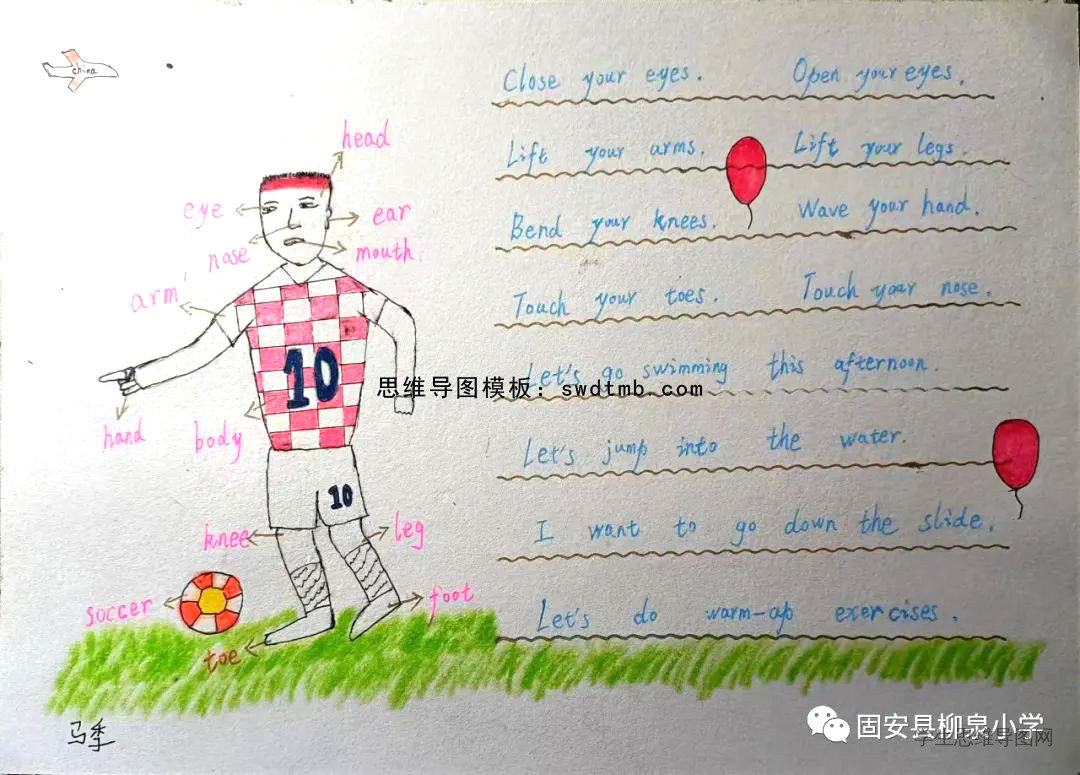 china
Close your eyes. Open your eyes.
head
Lift your arms. Lift your legs.
eye
ear
Bend your knees. Wave your hand.
nose
mouth.
arm
Touch your toes. Touch your nose.
10
Let's go swimming this afternoon.
思维导图模板: swdtmb.com
hand
body
Let's jump into the water.
10
knee
leg
I want to go down the slide.
soccer
foot
Let's do warm-up exercises.
toe
马季
固安县柳泉小学
学生思维导图网